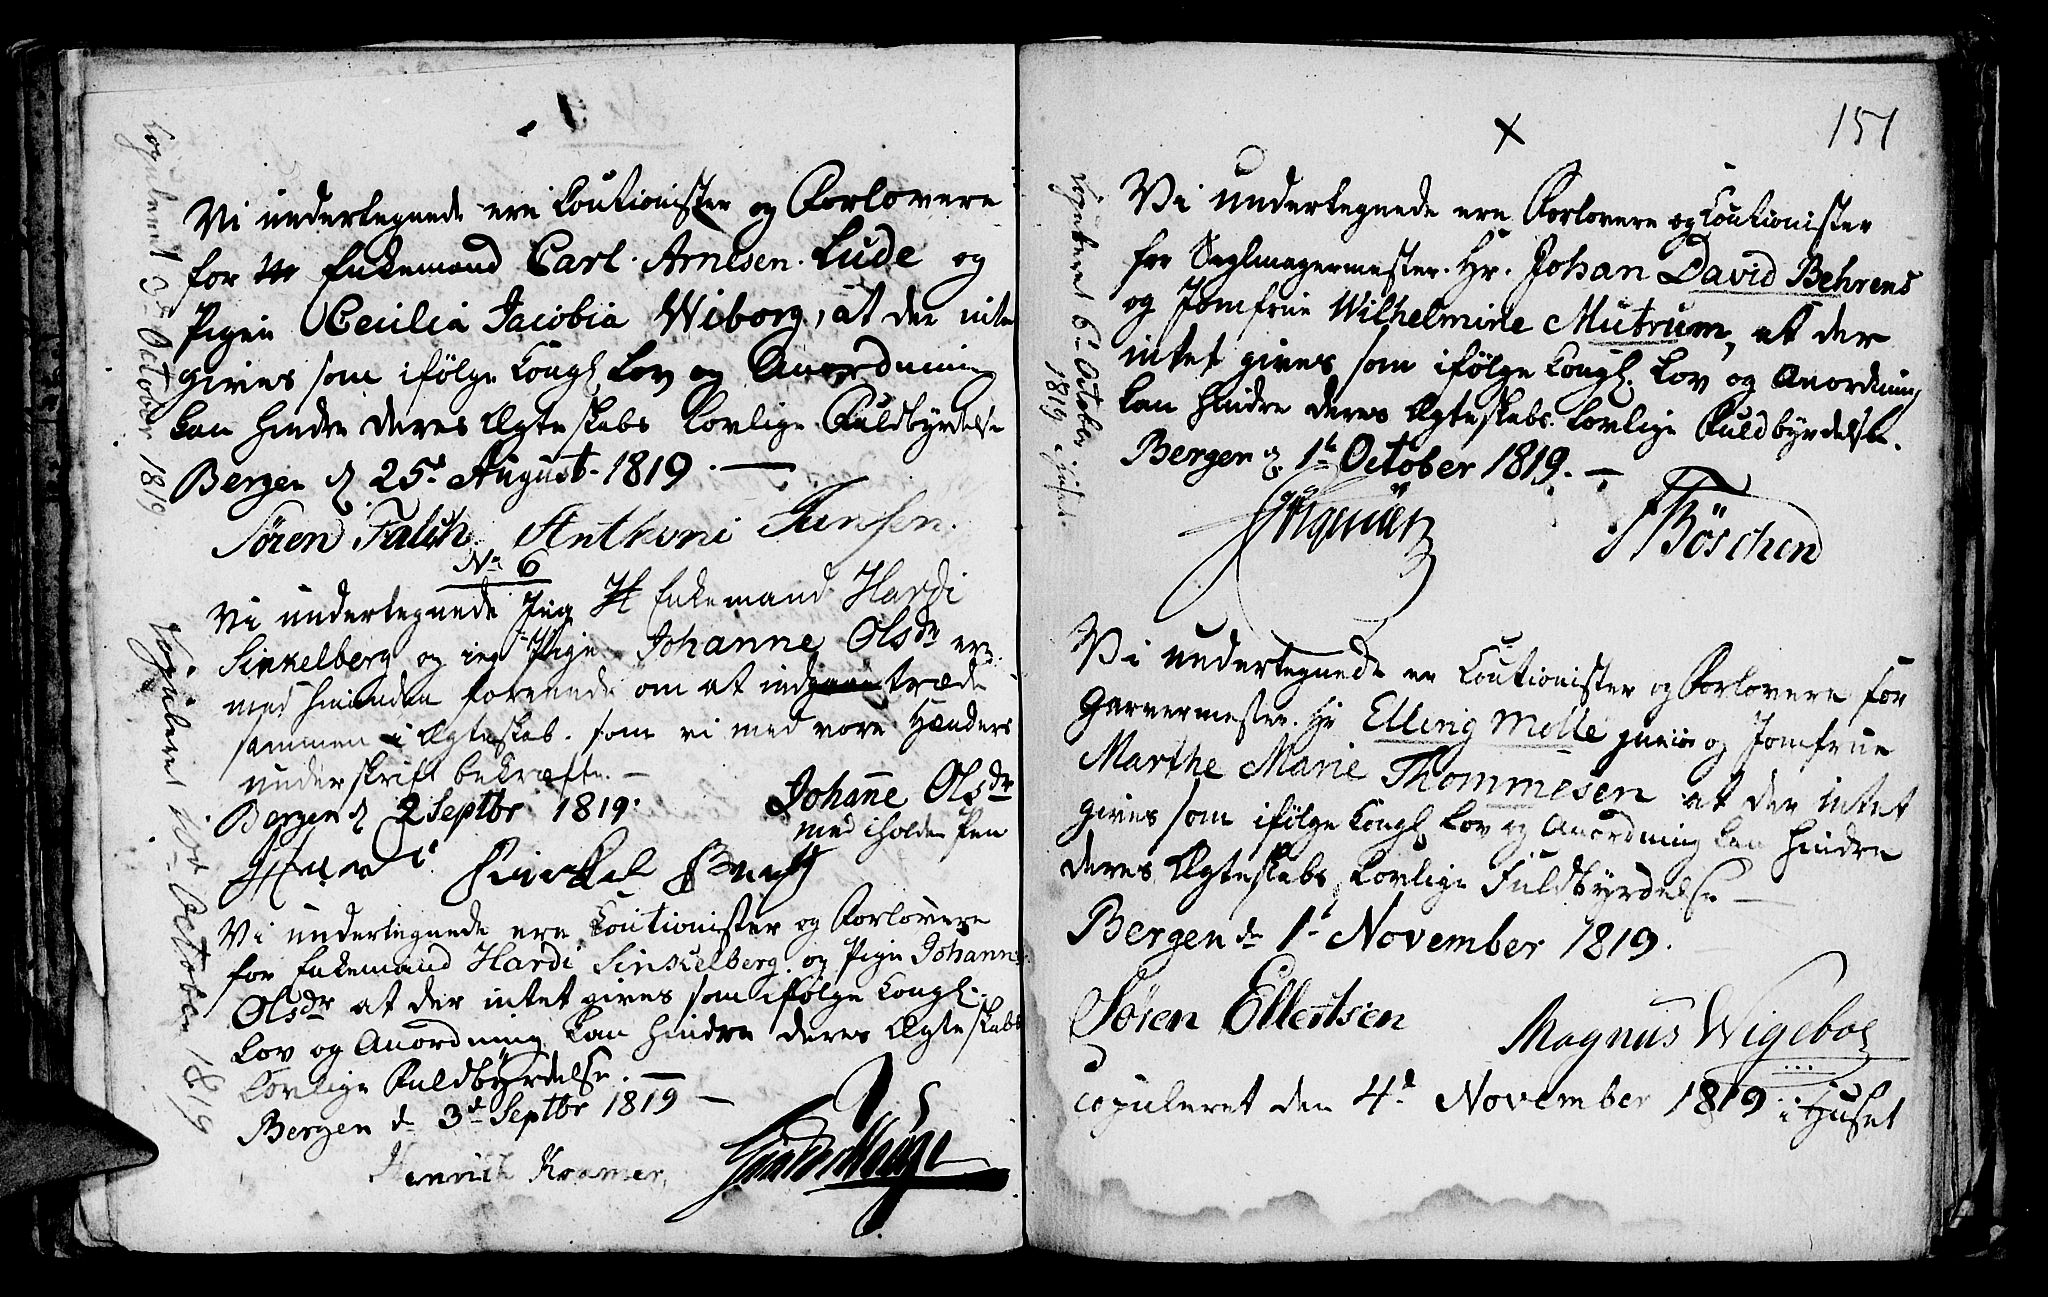 Copuleret 3de October 1819
Vi undertegnede ere Coutionister og Forlovere
for Enkemand Carl Arnesen Lude og
Pigen Cecilia Jacobia Wiborg, at der intet
gives som ifølge Kongl. Lov og Anordning
kan hindre deres Ægteskabs Lovlige Fuldbyrdelse
Bergen d. 25de August 1819.
Søren Falch Anthoni Jansen.
No 6
Vi undertegnede Jeg Enkemand Hardi
Sinkelberg og jeg Pige Johanne Olsdr ere
med hinanden forenede om at indtræde
sammen i Ægteskab. som vi med vore Hænders
underskrift bekræfte.
Bergen d. 2 Septbr 1819.
Johanne Olsdr
med iholden Pen
Copuleret October 1819
Vi undertegnede ere Coutionister og Forlovere
for Enkemand Hardi Sinkelberg og Pige Johanne
Olsdr at der intet gives som ifølge Kongl.
Lov og Anordning kan hindre deres Ægteskabs
Lovlige Fuldbyrdelse.
Bergen d. 3de Septbr 1819
Henrich Kramer,
151
x
Copuleret 6te October
1819 i huset
Vi undertegnede ere Forlovere og Coutionister
for Seglmagermester Hr. Johan David Behrens
og Jomfrue Wilhelmine Mutrum, at der
intet gives som ifølge Kongl. Lov og Anordning
kan hindre deres Ægteskabs Lovlige Fuldbyrdelse.
Bergen d. 1te October 1819.
Böschen
Vi undertegnede er Coutionister og Forlovere for
Garvermester Hr Elling Molle junior og Jomfrue
Marthe Marie Thommesen at der intet
gives som ifølge Kongl. Lov og Anordning kan hindre
deres Ægteskabs Lovlige Fuldbyrdelse
Bergen d. 1te November 1819.
Søren Ellertsen
Magnus Wigeboe
copuleret den 4de November 1819 i Huset